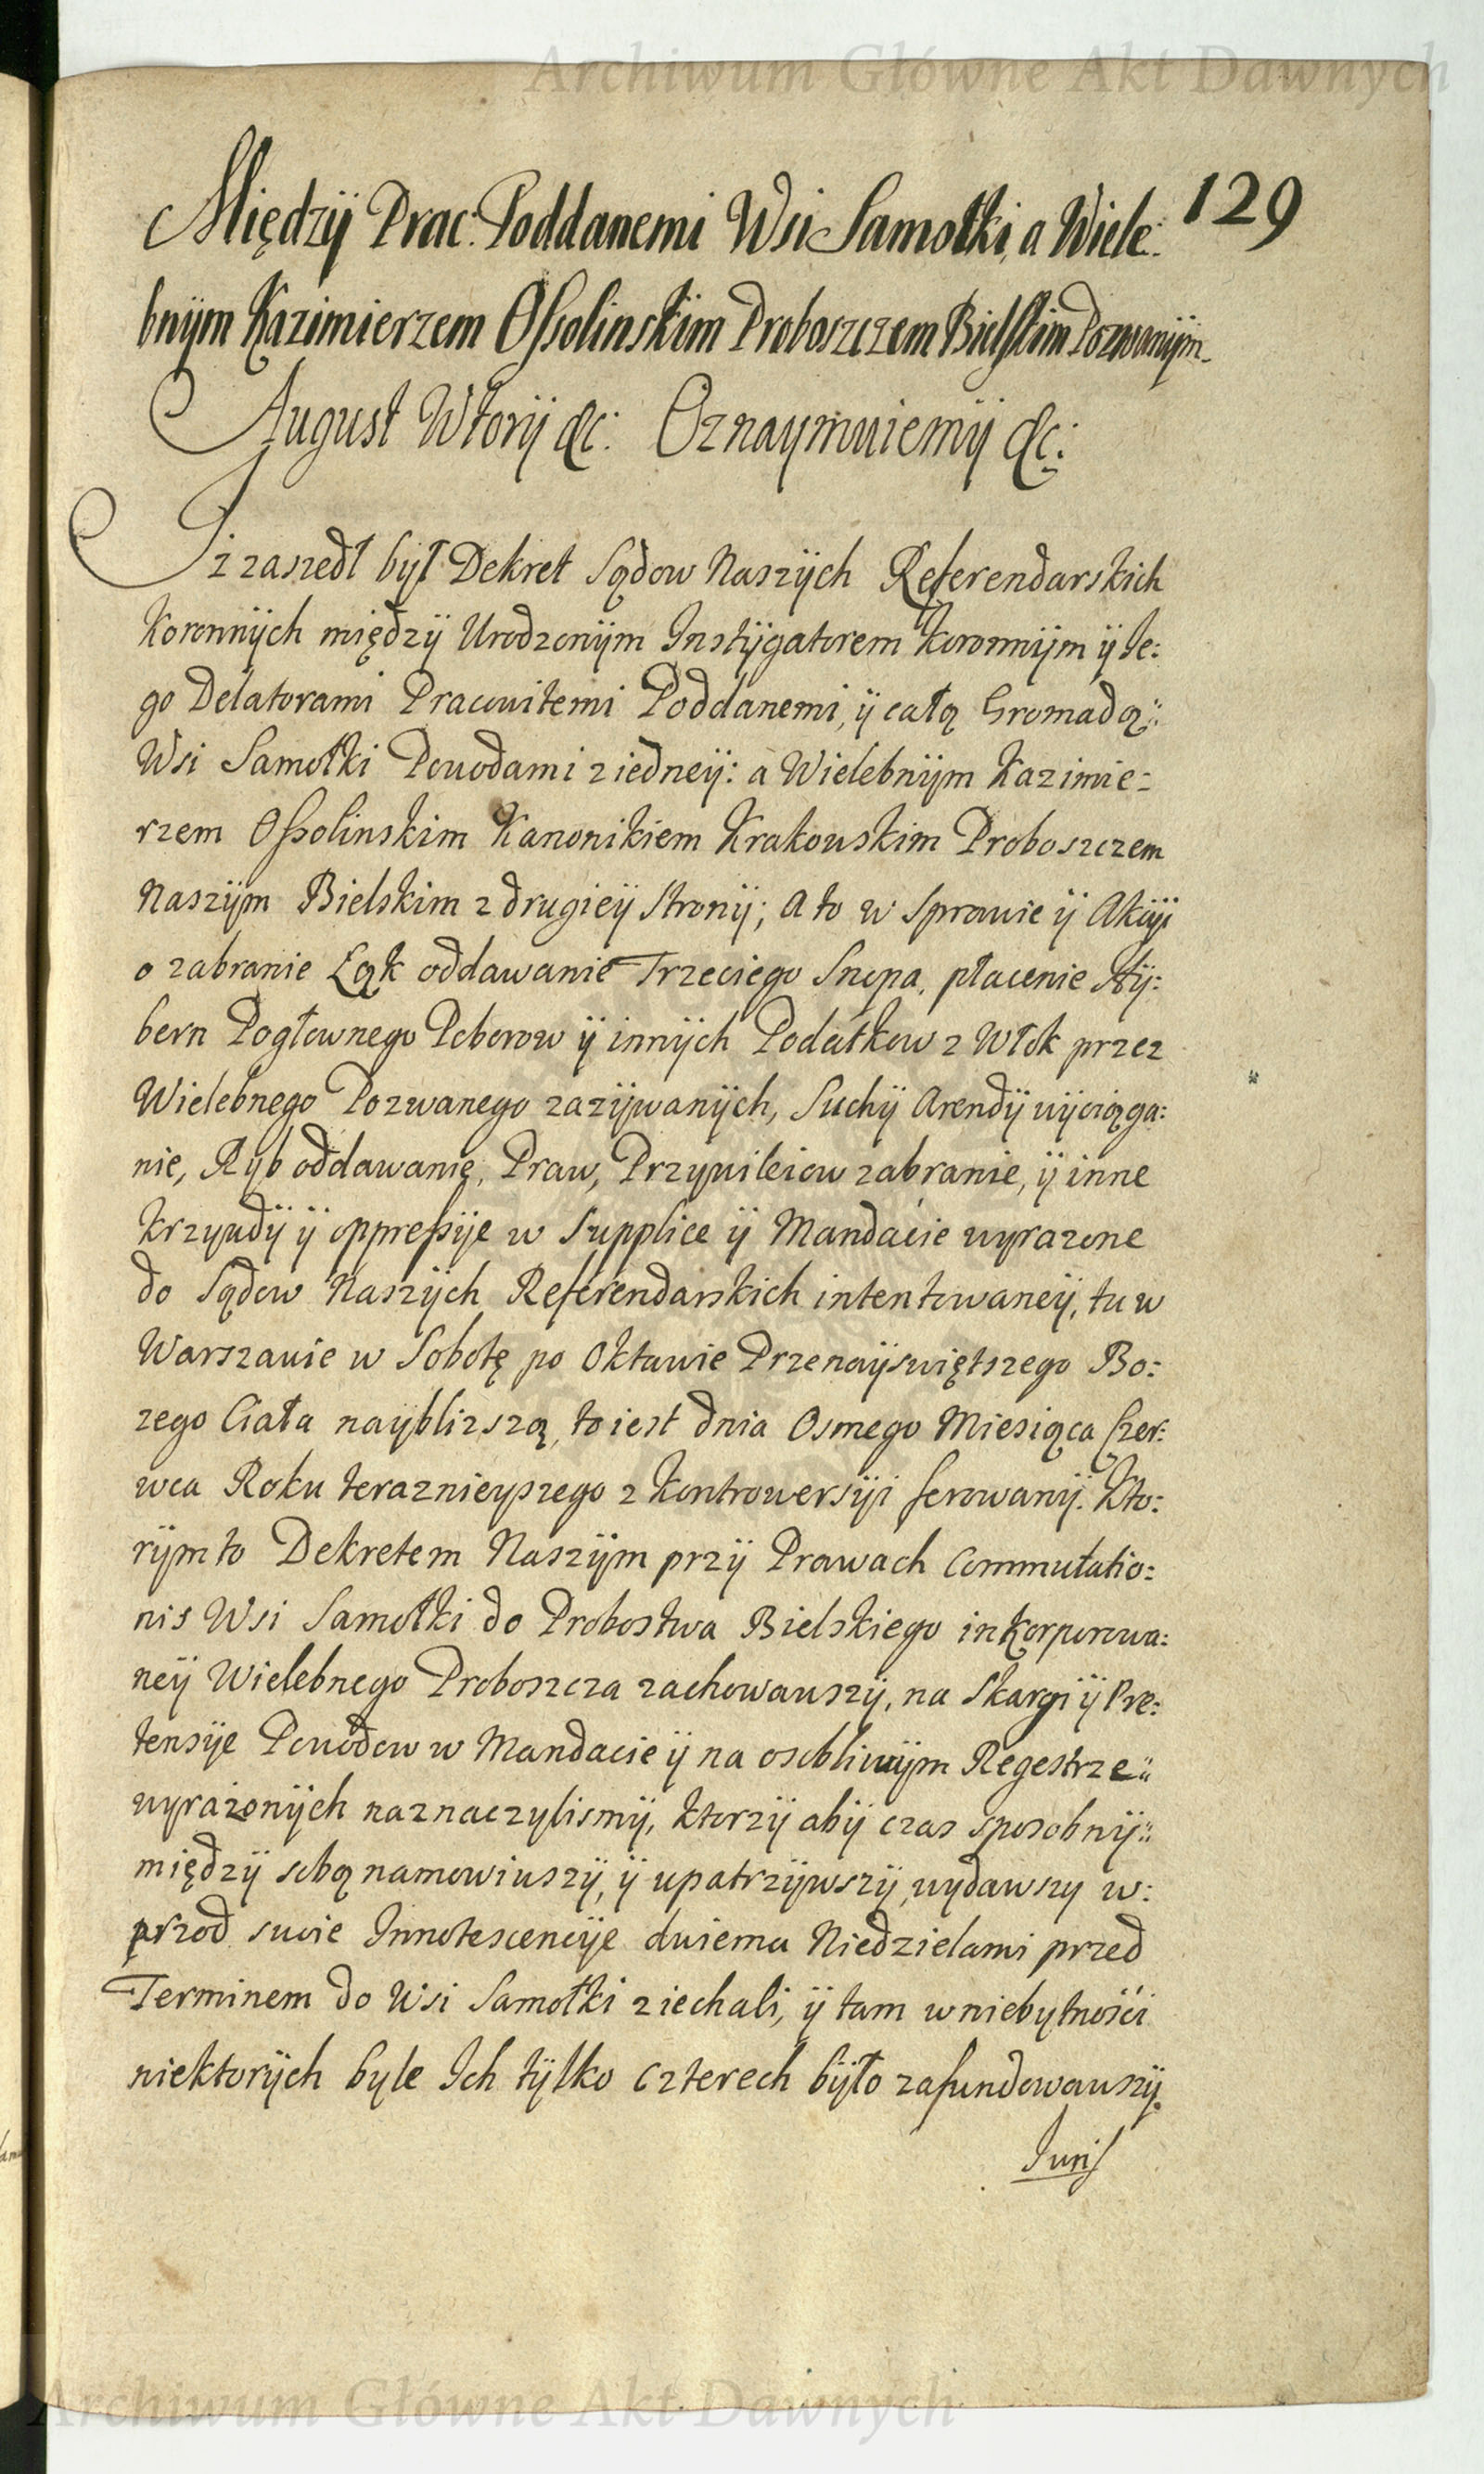 Archiwum Główne Akt Dawnych
129
Międzÿ Prac: Poddanemi Wsi Samołki, a Wiele:
bnÿm Kazimierzem Ossolinskim Proboszczem Bielskim Pozwanÿm
August Wtorÿ &c: Oznaymuiemÿ &c:
Iż zaszedł bÿł Dekret Sądow Naszÿch Referendarskich
Koronnÿch międzÿ Urodzonÿm Instÿgatorem Koronnÿm ÿ Ie:
go Delatorami Pracowitemi Poddanemi, ÿ całą Gromadą
Wsi Samołki Powodami z iedneÿ: a Wielebnÿm Kazimie:
rzem Ossolinskim Kanonikiem Krakowskim Proboszczem
Naszÿm Bielskim z drugieÿ Stronÿ; A to w Sprawie ÿ Akcÿi
o zabranie Łąk oddawanie Trzeciego Snopa, płacenie Hÿ:
bern Pogłownego Poborow ÿ innÿch Podatkow z Włok przez
Wielebnego Pozwanego zazÿwanÿch, Suchÿ Arendÿ wÿciąga:
nie, Ryb oddawanie, Praw, Przywileiow zabranie, ÿ inne
Krzywdÿ ÿ oppressÿe w Supplice ÿ Mandacie wyrazone
do Sądow Naszÿch Referendarskich intentowaneÿ, tu w
Warszawie w Sobotę po Oktawie Przenaÿswiętszego Bo:
zego Ciała nayblizszą, to iest dnia Osmego Miesiąca Czer:
wca Roku teraznieyszego z Kontrowersÿi ferowanÿ. Kto:
rÿm to Dekretem Naszÿm przÿ Prawach Commutatio:
nis Wsi Samołki do Probostwa Bielskiego inkorporowa:
neÿ Wielebnego Proboszcza zachowawszÿ, na Skargi ÿ Pre:
tensÿe Powodow w Mandacie ÿ na osobliwÿm Regestrze
wyrażonÿch naznaczylismÿ, Ktorzÿ abÿ czas sposobnÿ
międzÿ sobą namowiwszÿ, ÿ upatrzÿwszÿ, wydawszy w:
przod swoie Innotescencÿe dwiema Niedzielami przed
Terminem do Wsi Samołki ziechali, ÿ tam w niebytnośći
niektorÿch byle Ich tÿlko czterech bÿło zafundowawszÿ
Juris
Archiwum Główne Akt Dawnych